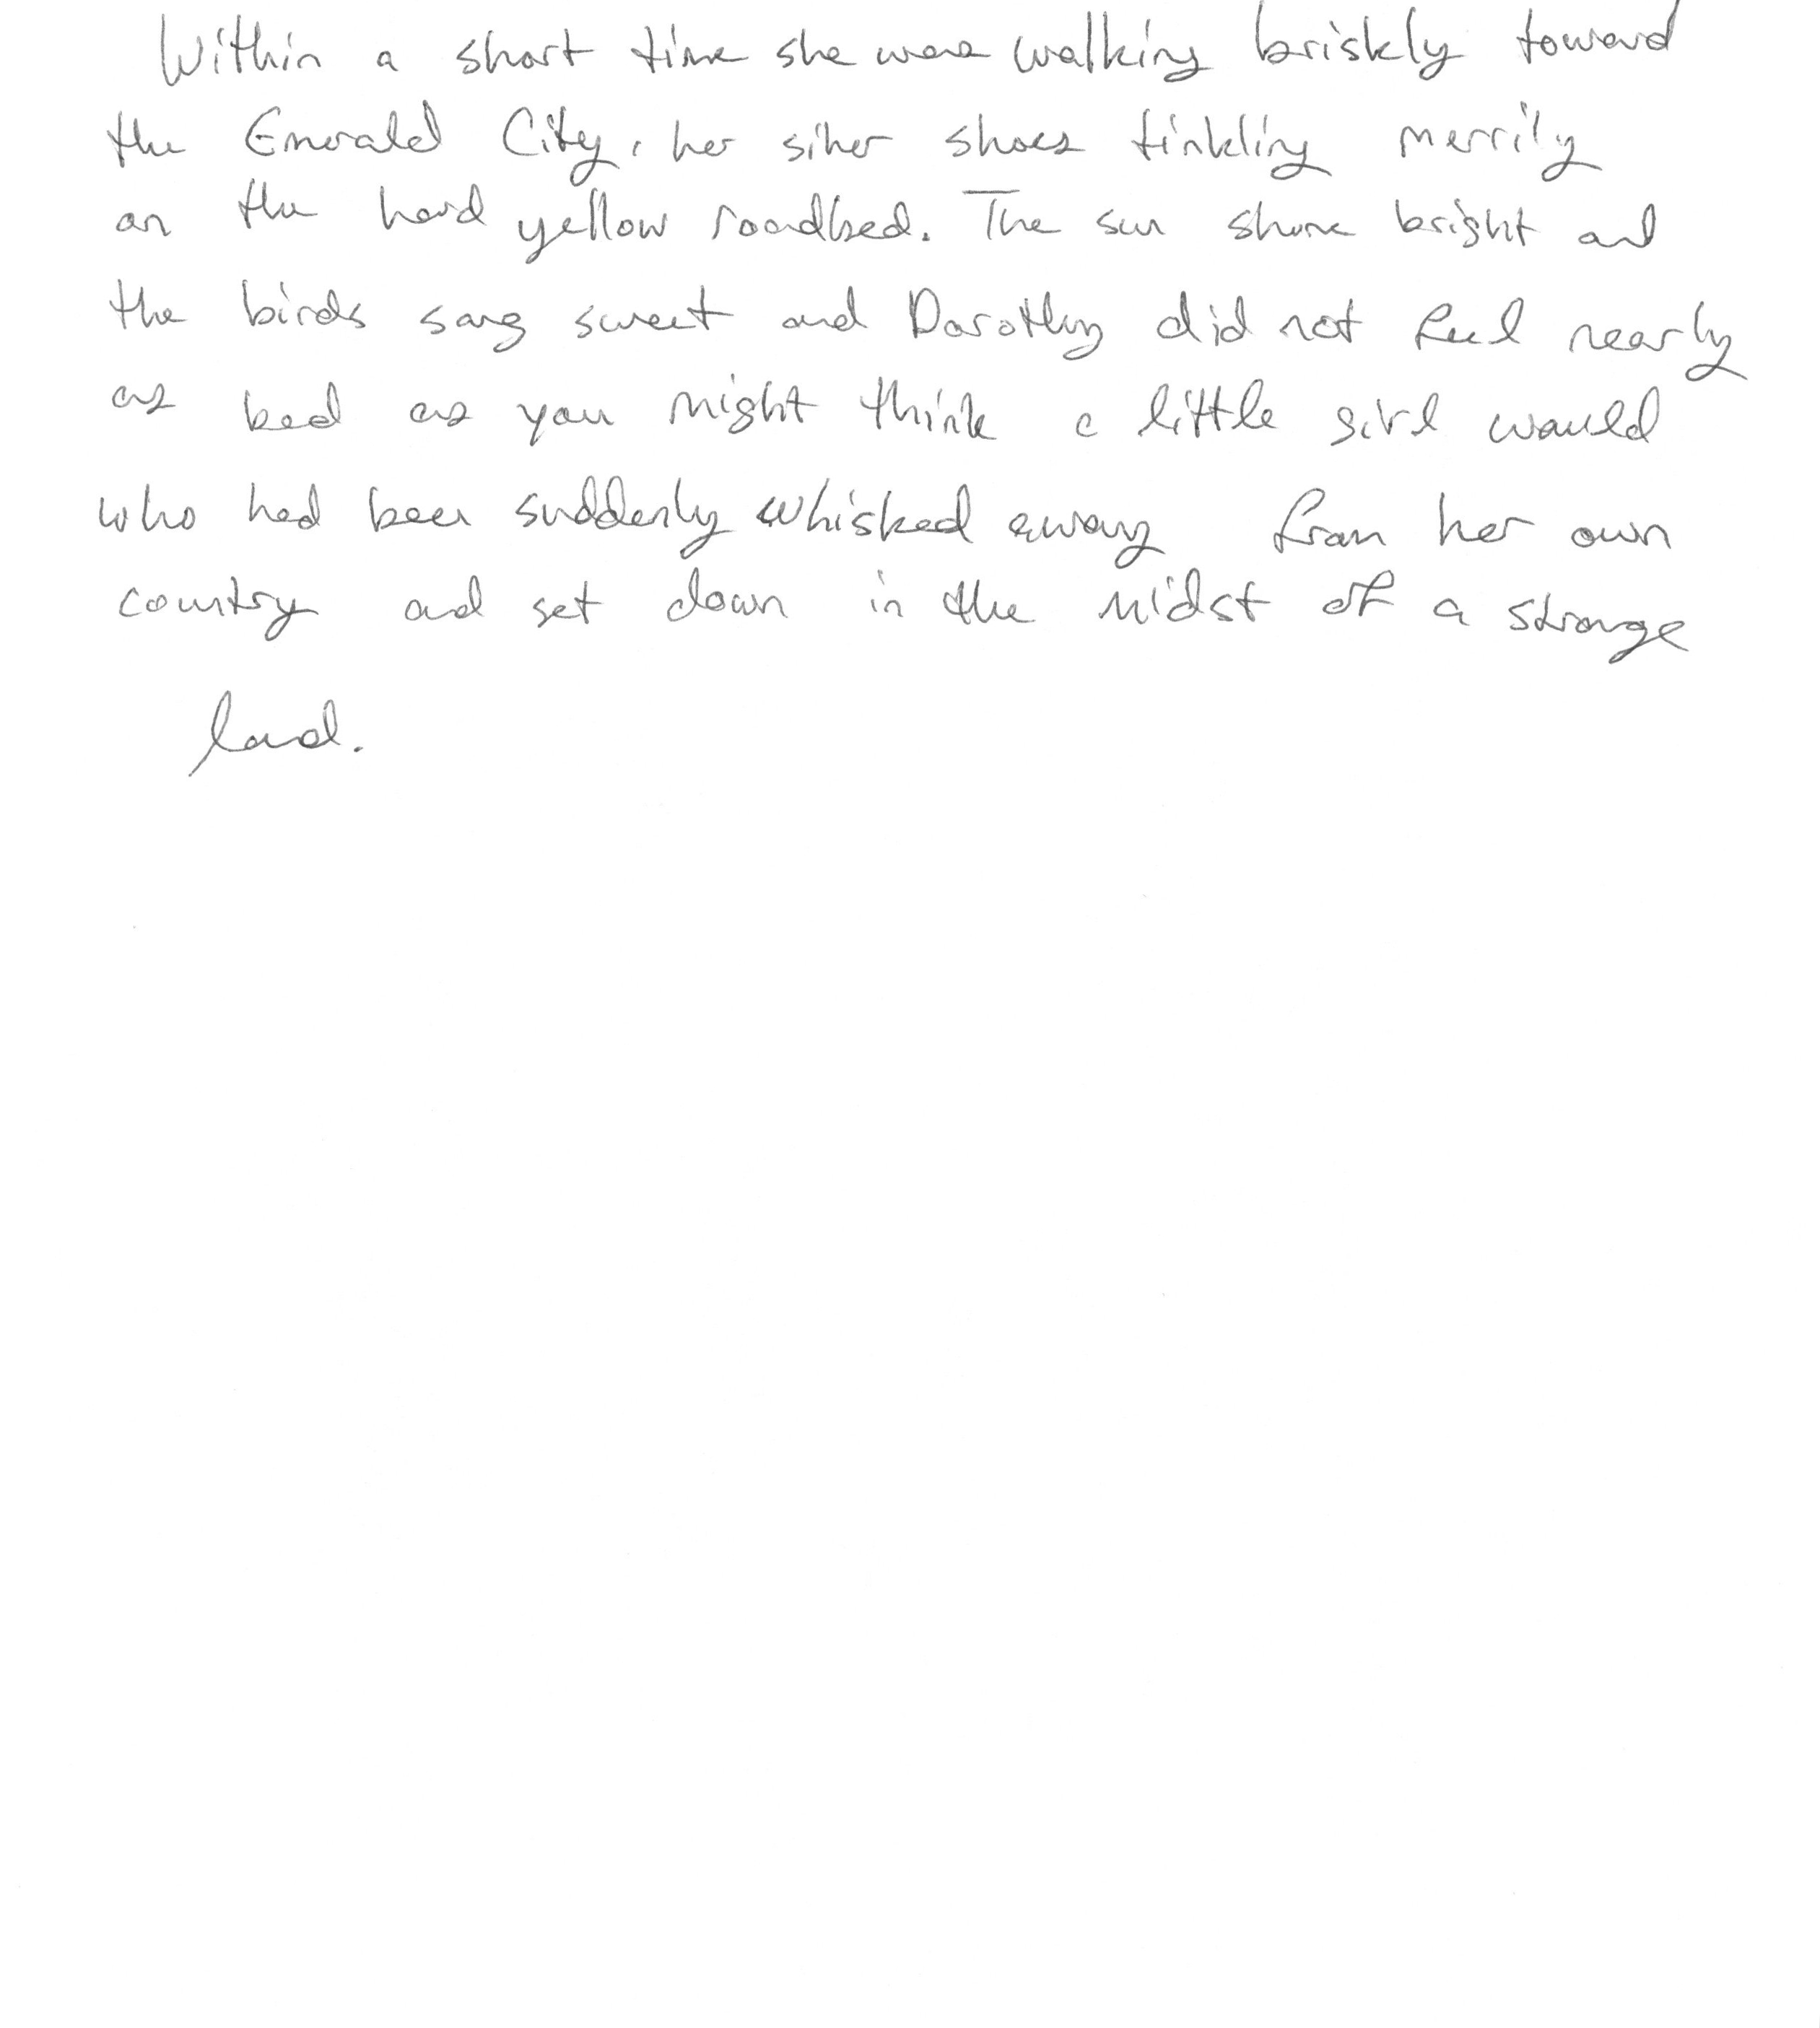 Within a short time she was walking briskly toward
the Emerald City, her silver shoes tinkling merrily
on the hard yellow roadbed. The sun shone bright and
the birds sang sweet and Dorothy did not feel nearly
as bad as you might think a little girl would
who had been suddenly whisked away from her own
country and set down in the midst of a strange
land.